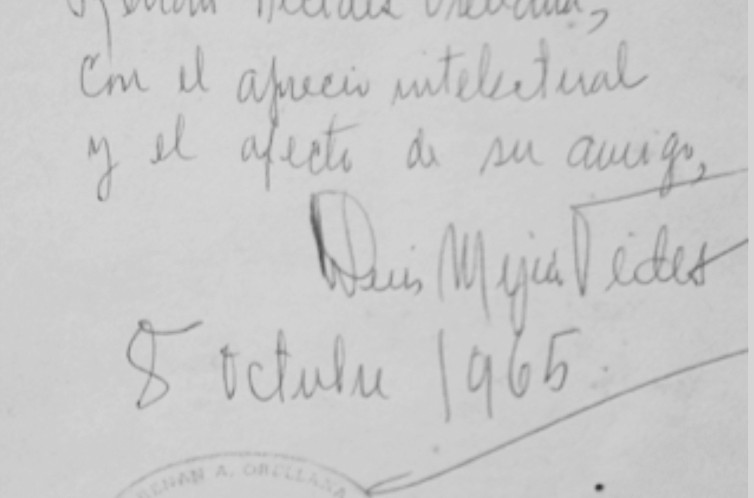 Renán Alcides Orellana,
Con el aprecio intelectual
y el afecto de su amigo,
Luis Mejía Vides
8 octubre 1965.
RENAN A. ORELLANA